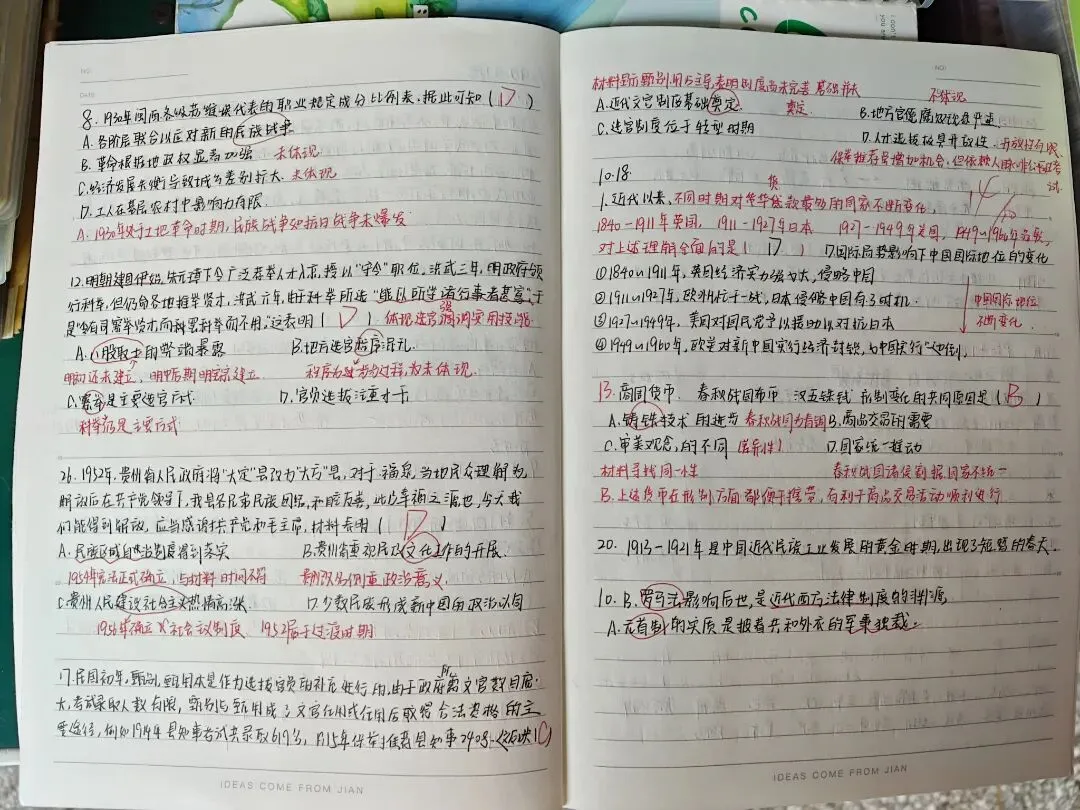 NO:
DATE:
8. 1930年闽西各级苏维埃代表的职业规定成分比例表,据此可知( D )
A. 各阶层联合以应对新的民族战争
B. 革命根据地政权显著加强 未体现
C. 经济发展失衡导致城乡差别扩大. 未体现
D. 工人在基层农村中影响力有限.
A. 1930年处于土地革命时期,民族战争如抗日战争未爆发
12. 明朝建国伊始,朱元璋下令广泛荐举人才入京,授以“守令”职位,洪武三年,明政府颁
行科举,但仍命各地推举贤才,洪武六年,由于科举所选“能以所学诸行事者甚寡”,于
是“令有司察举贤才,而科罢科举而不用。”这表明( D ) 体现选官强调实用技能
A. 八股取士的弊端暴露 B. 地方选官程序混乱.
明初还未建立,明中后期明宗建立. 程序为过程,为未体现.
C. 察举是主要选官方式 D. 官员选拔注重才干
科举仍是主要方式
26. 1952年,贵州省人民政府将“大定”县改为“大方”县,对于福息,当地民众理解为
解放后在共产党领导下,我县各兄弟民族团结,和睦友善,此也幸福之源也,今天我
们能得到解放,应当感谢共产党和毛主席,材料表明( D )
A. 民族区域自治制度得到落实 B. 贵州省重视民政文化工作的开展.
1954年宪法正式确立,与材料时间不符 更改名侧重政治意义
C. 贵州人民建设社会主义热情高涨 D. 少数民族形成新中国的政治认同
1956年确立义社会议制度、1952属于过渡时期
17. 民国初年,甄别、甄用本是作为选拔官员的补充进行的,由于政府所需文官数目庞
大,考试录取人数有限,甄别与甄用成了文官任用或任用后取得合法资格的主
要途径,例如1914年县知事考试共录取619名,而15年保荐推荐县知事2408 (这反映) C
IDEAS COME FROM JIAN
NO:
材料显示甄别、用占主导,表明制度尚未完善 基础非大
A. 近代文官制度基础奠定 奠定 B. 地方官僚腐败现象严重 不体现
C. 选官制度位于转型时期 D. 人才选拔极具开放性. 开放性有限
保举推荐虽增加机会,但依赖人脉,非公平竞考试.
10.18.
1. 近代以来,不同时期对华贷款最多的国家不断变化,
1840-1911年英国, 1911-1927年日本 1927-1949年美国, 1949~1960年苏联,
对上述理解全面的是( D ) D. 国际局势影响下中国国际地位的变化
①1840~1911年,英国经济实力强大,侵略中国
②1911~1927年,欧洲忙于一战,日本侵略中国有了时机.
③1927~1949年,美国对国民党予以援助以对抗日本
④1949~1960年,欧美对新中国实行经济封锁,中国实行“一边倒”
中国国际地位
不断变化.
13. 商周货币. 春秋战国布币 汉五铢钱 形制变化的共同原因是( B )
A. 铸铁技术的进步 春秋战国为青铜 B. 商品交易的需要
C. 审美观念,的不同 (差异性) D. 国家统一推动
材料寻找同一性 春秋战国诸侯割据国家不统一
B. 上述货币在形制方面都便于携带,有利于商品交易活动顺利进行
20. 1913-1921年是中国近代民族工业发展的黄金时期,出现了短暂的春天.
10. B. 罗马法影响后世,是近代西方法律制度的渊源
A. 元首制的实质是披着共和外衣的军事独裁.
IDEAS COME FROM JIAN